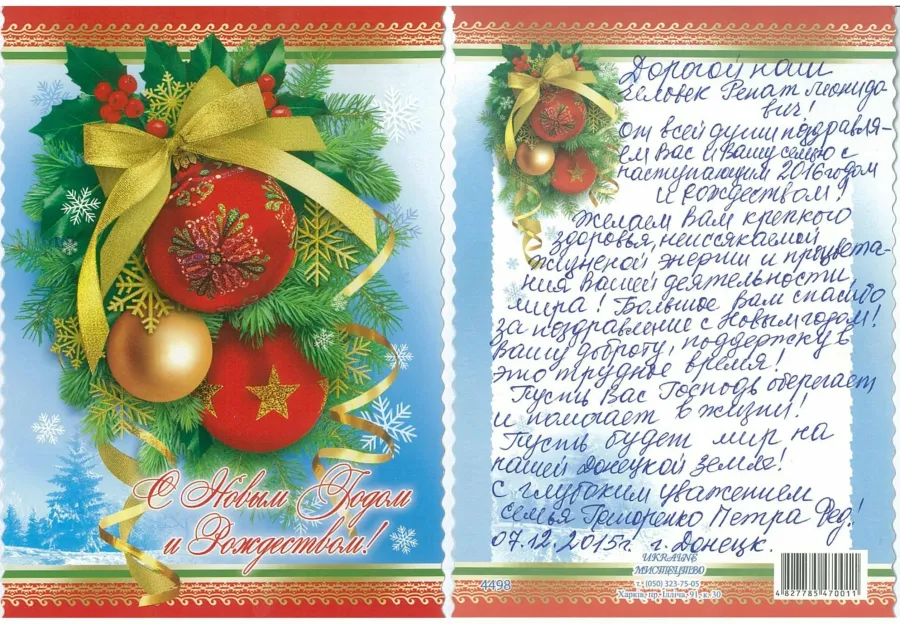 С Новым Годом
и Рождеством!
Дорогой наш
человек Ренат Леонидо
вич!
От всей души поздравля-
ем Вас и Вашу семью с
наступающим 2016 годом
и Рождеством!
Желаем Вам крепкого
здоровья, неиссякаемой
жизненой энергии и процвета-
ния Вашей деятельности
мира! Большое Вам спасибо
за поздравление с Новым годом!
Вашу доброту, поддержку в
это трудное время!
Пусть Вас Господь оберегает
и помогает в жизни!
Пусть будет мир на
нашей Донецкой земле!
С глубоким уважением
семья Григоренко Петра Фед.!
07.12.2015г. г. Донецк.
UKRAINE
МИСТЕЦТВО
4498
т.(050) 323-75-05
Харків, пр. Ілліча, 91, к. 30
4 827785 470011